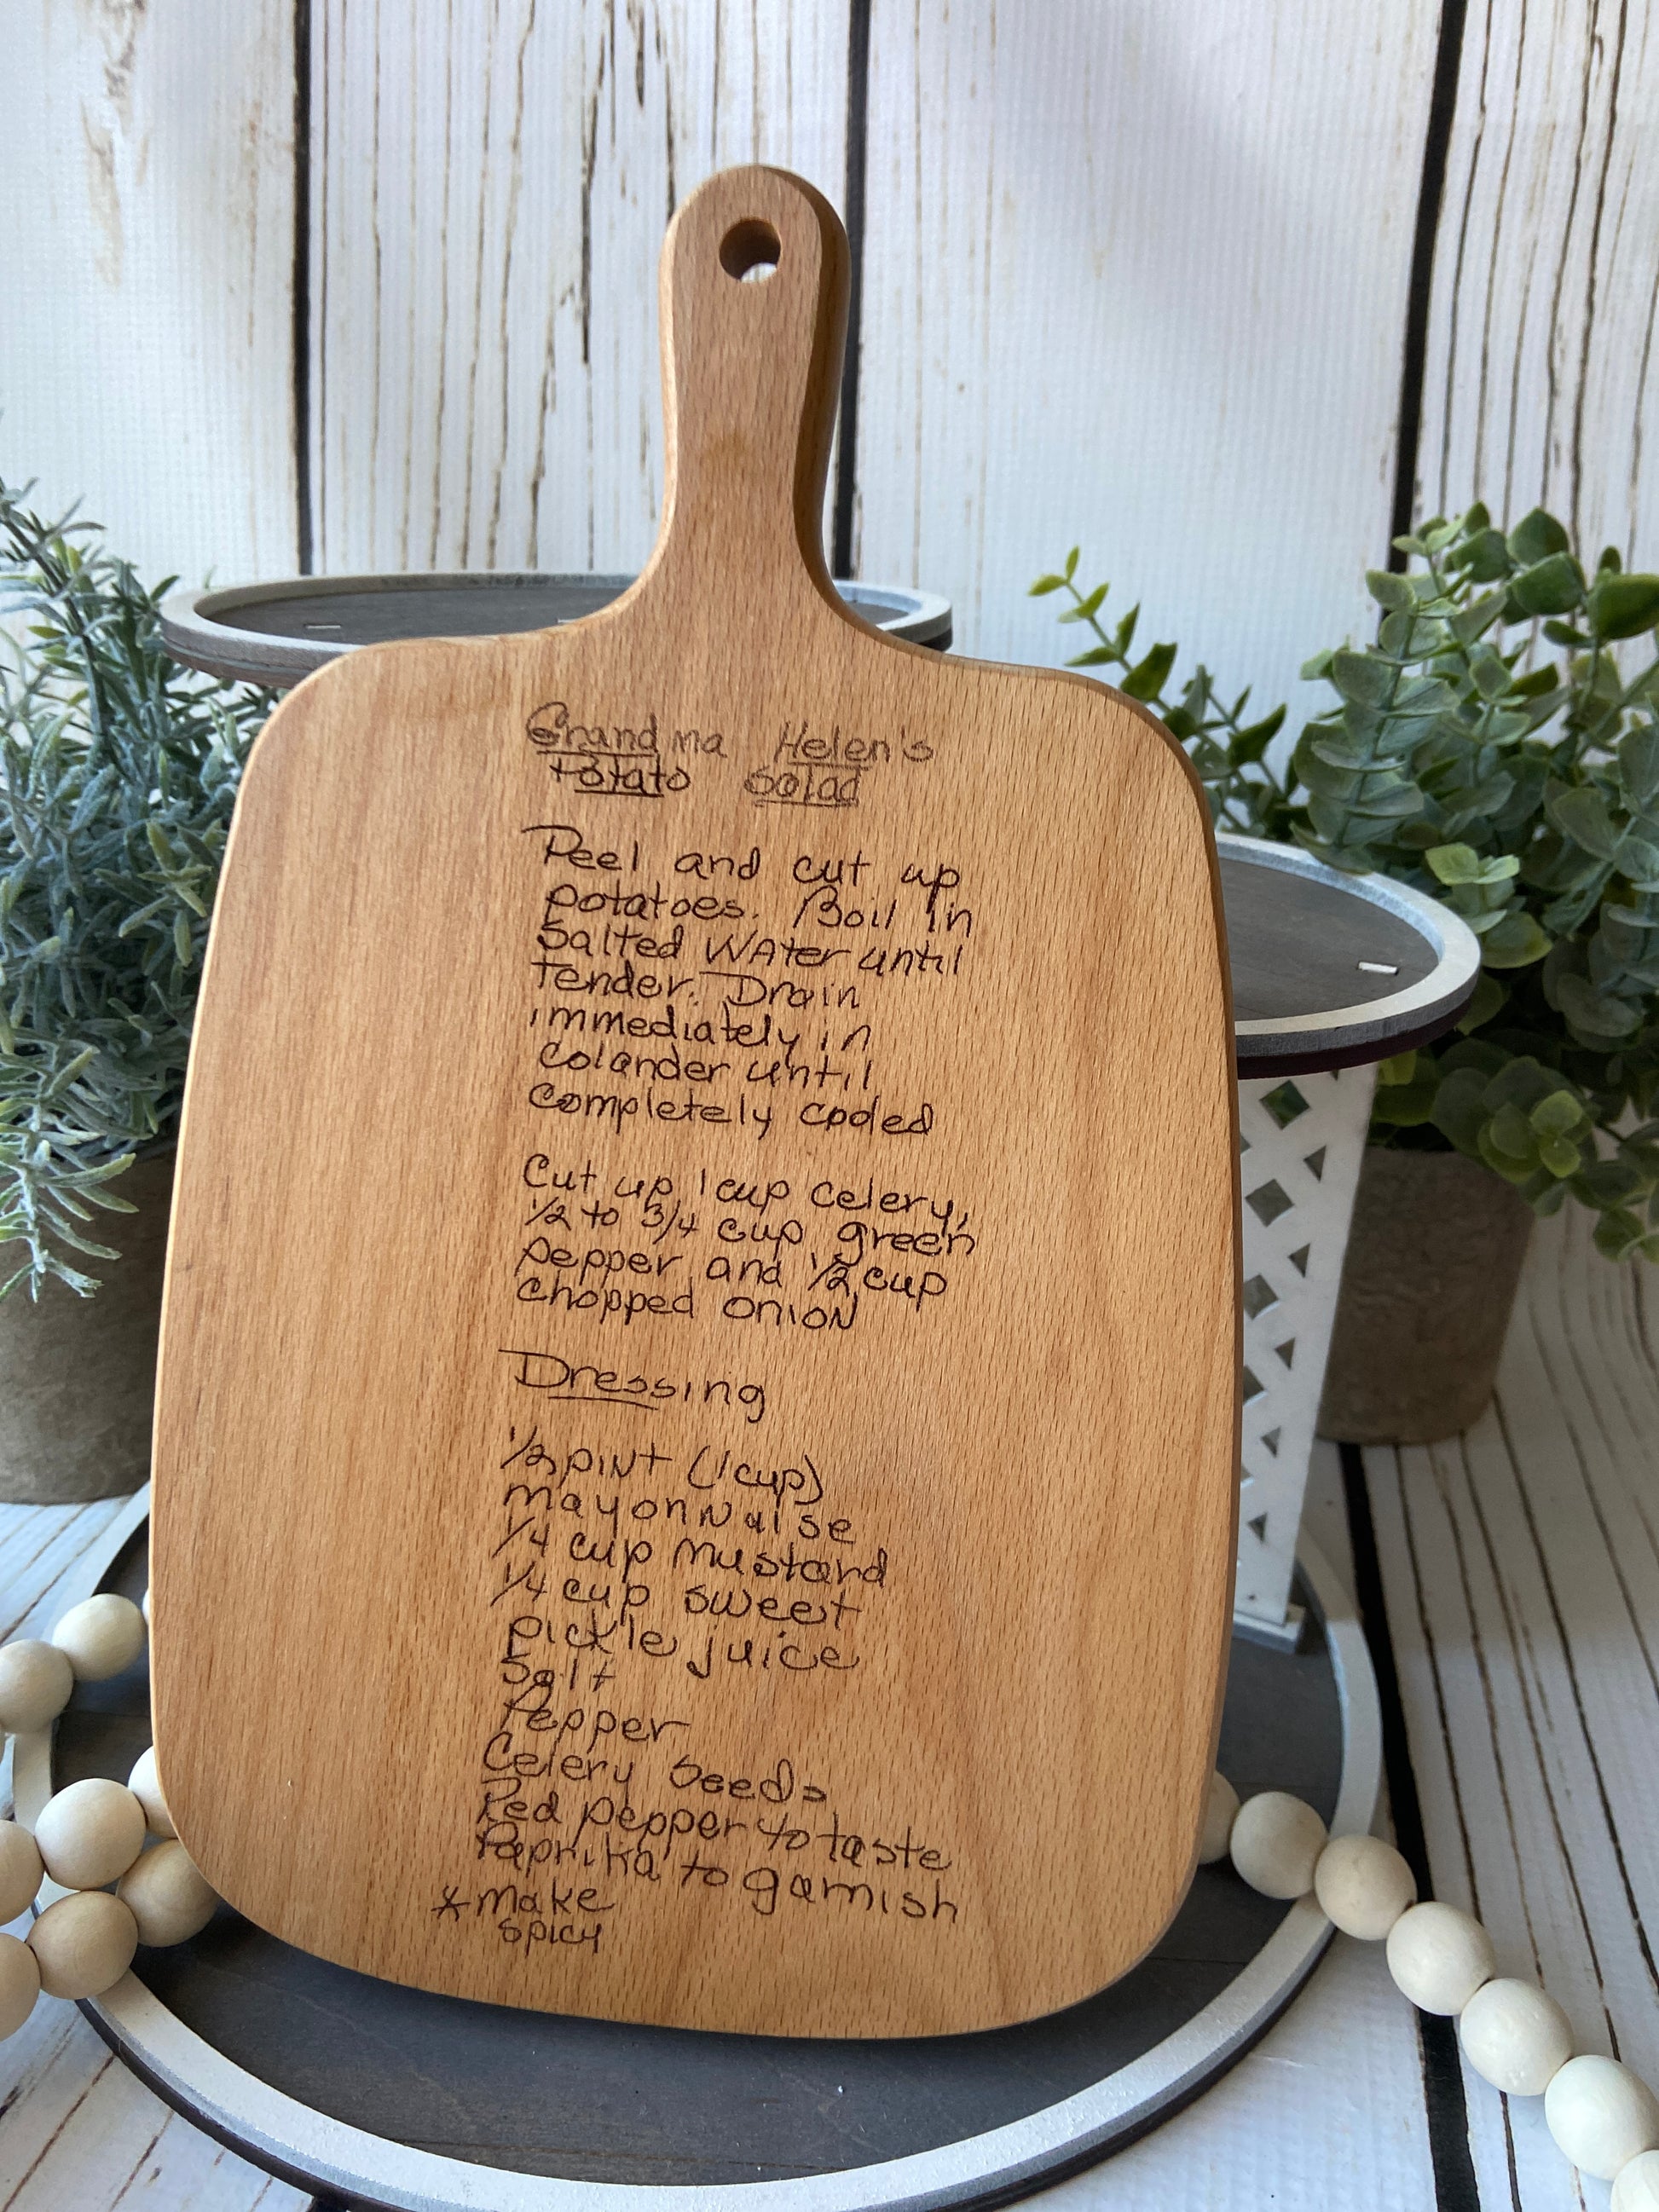 Grandma Helen's
potato Salad
Peel and cut up
potatoes. Boil in
Salted WAter until
Tender. Drain
immediately in
Colander until
Completely cooled
Cut up 1 cup Celery,
1/2 to 3/4 cup green
pepper and 1/2 cup
Chopped ONION
Dressing
1/2 PINT (1 cup)
MayonNaise
1/4 cup Mustard
1/4 cup sweet
pickle juice
Salt
Pepper
Celery Seeds
Red pepper to taste
Paprika to garnish
*Make
spicy